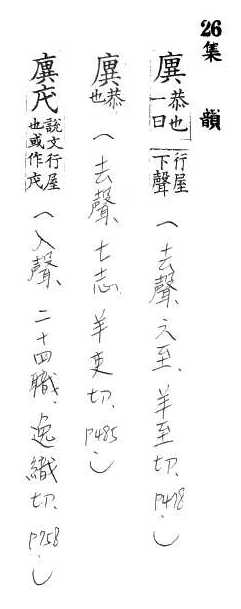 26集韻
廙恭也一曰行屋下聲(去聲、六至、羊至切、P478.)
廙恭也(去聲、七志、羊吏切、P485.)
廙庑說文行屋也或作庑(入聲、二十四職、逸織切、P758.)